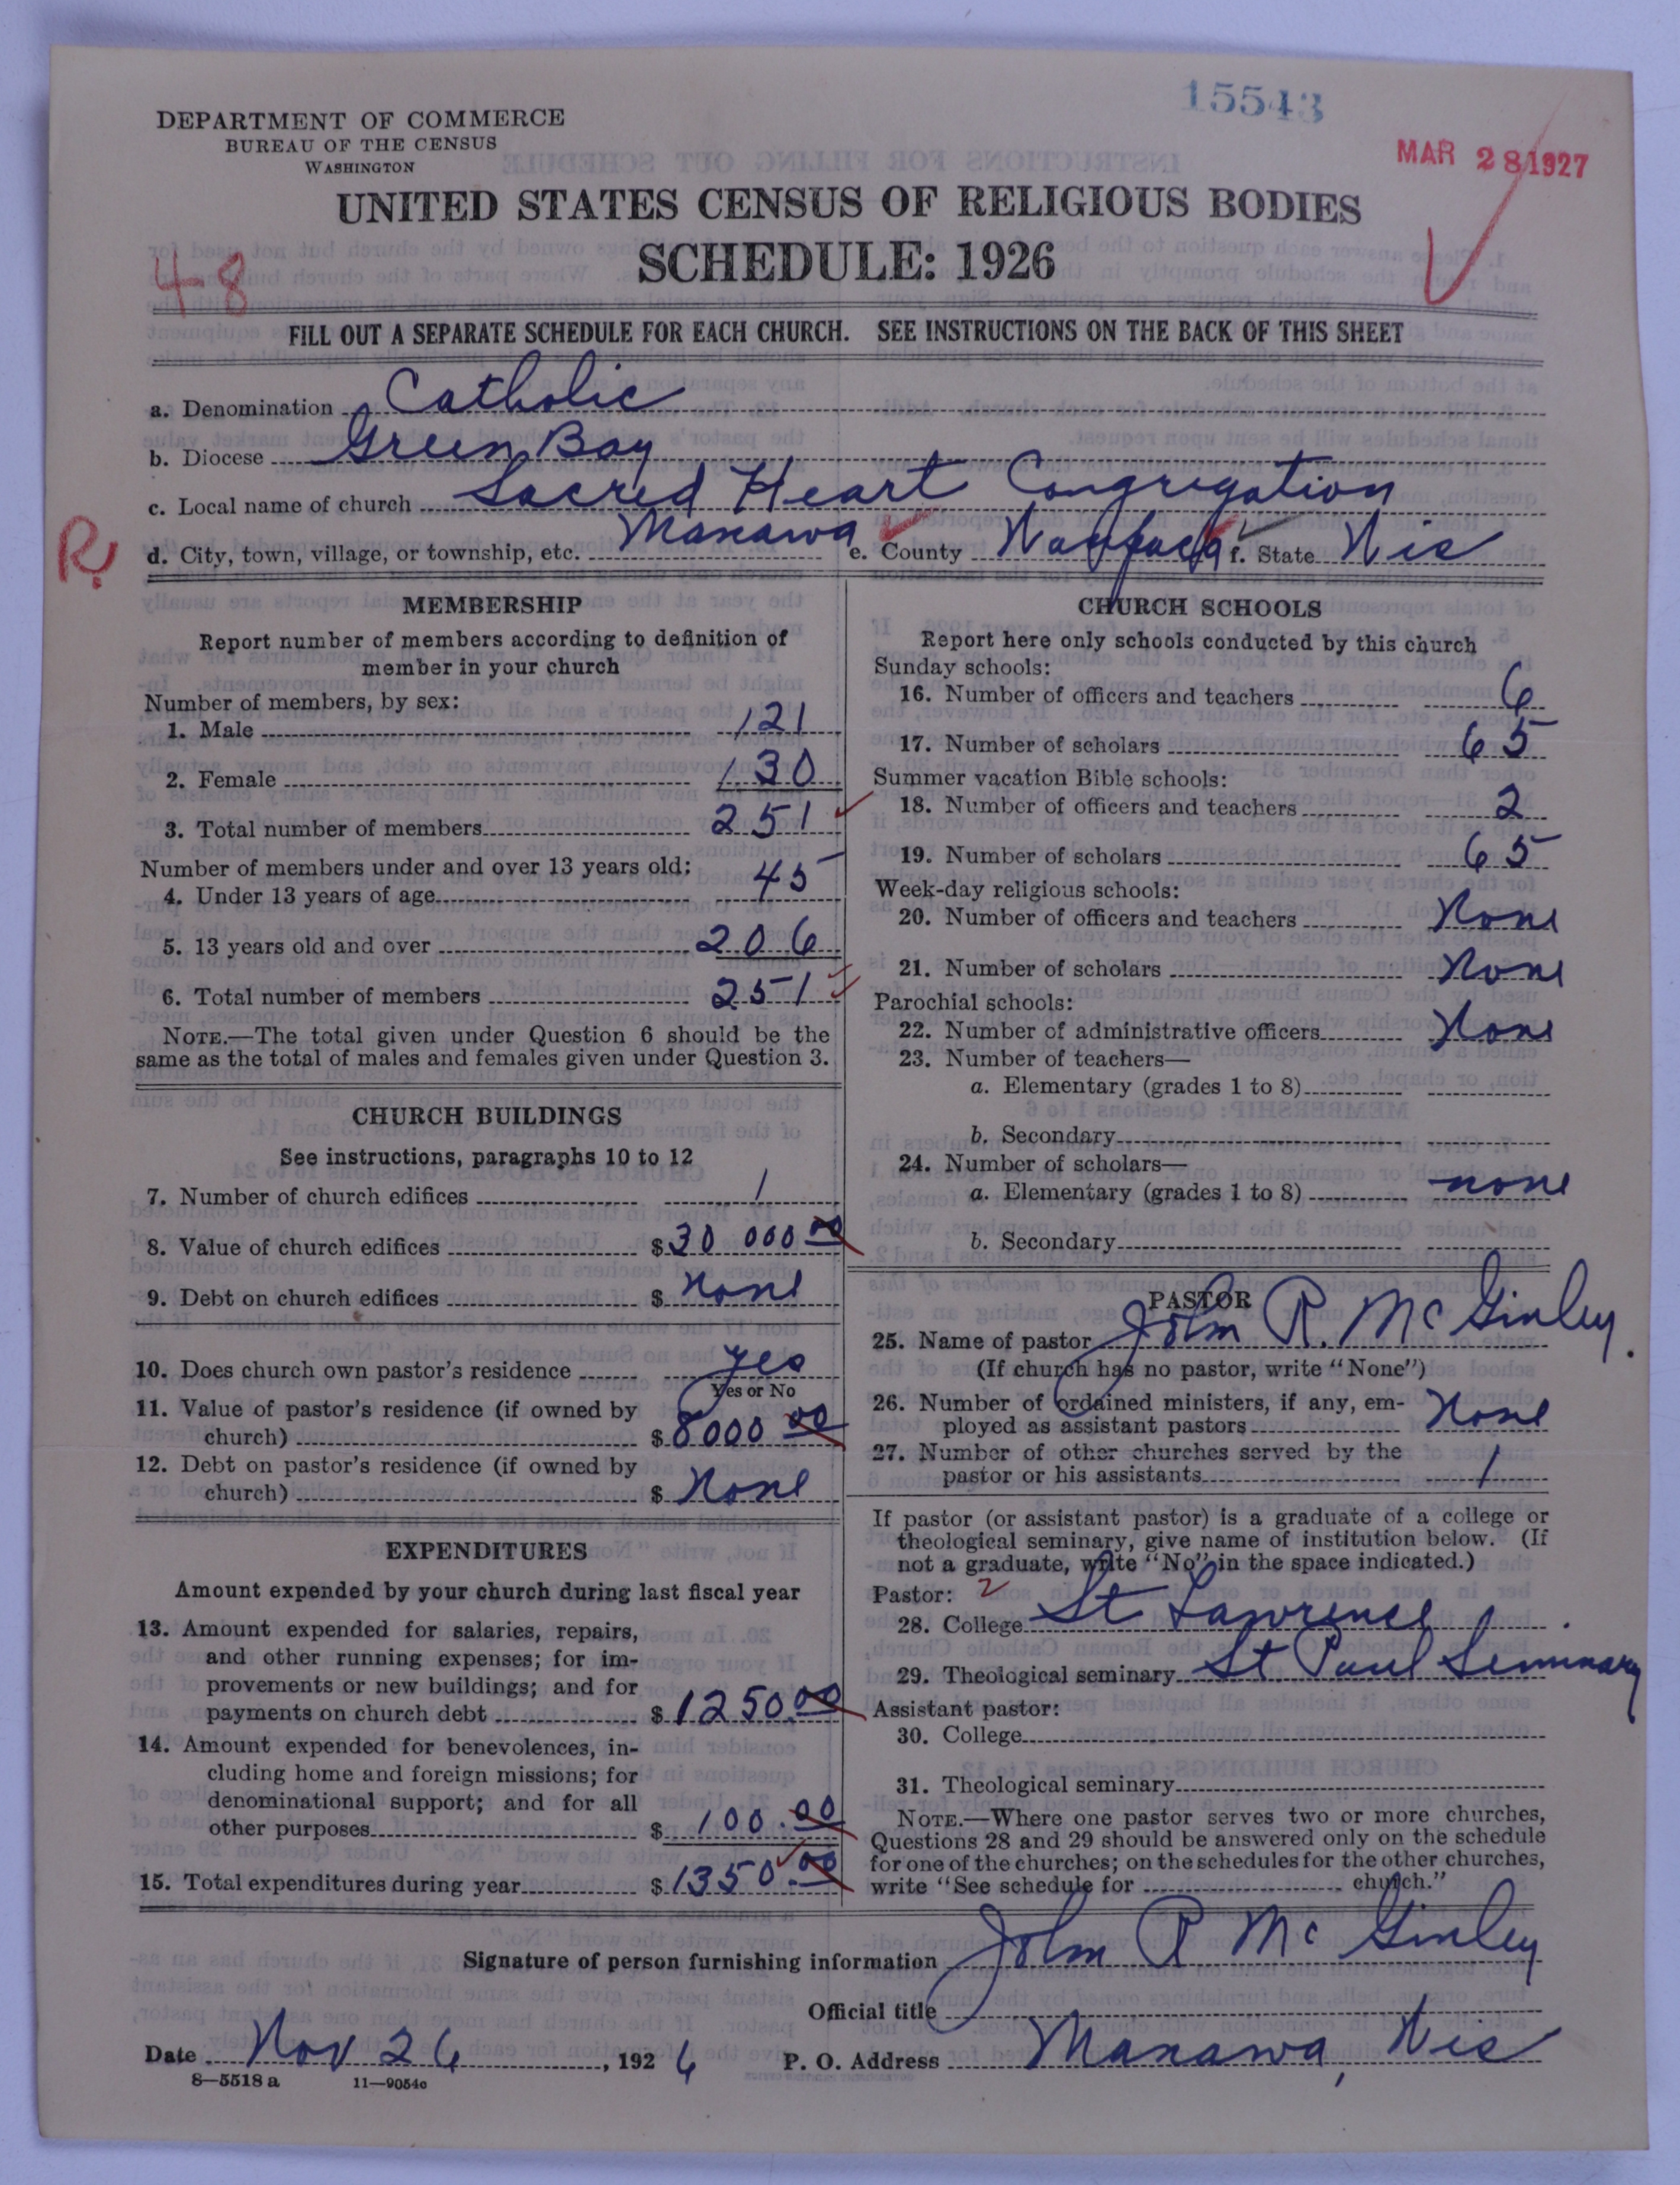 15543
DEPARTMENT OF COMMERCE
BUREAU OF THE CENSUS
WASHINGTON
MAR 28 1927
UNITED STATES CENSUS OF RELIGIOUS BODIES
SCHEDULE: 1926
48
FILL OUT A SEPARATE SCHEDULE FOR EACH CHURCH. SEE INSTRUCTIONS ON THE BACK OF THIS SHEET
a. Denomination Catholic
b. Diocese Green Bay
c. Local name of church Sacred Heart Congregation
R.
d. City, town, village, or township, etc. Manawa e. County Waupaca f. State Wis
MEMBERSHIP
Report number of members according to definition of
member in your church
Number of members, by sex:
1. Male 121
2. Female 130
3. Total number of members 251
Number of members under and over 13 years old:
4. Under 13 years of age 45
5. 13 years old and over 206
6. Total number of members 251
NOTE.—The total given under Question 6 should be the
same as the total of males and females given under Question 3.
CHURCH BUILDINGS
See instructions, paragraphs 10 to 12
7. Number of church edifices 1
8. Value of church edifices $30 000 00
9. Debt on church edifices $ none
10. Does church own pastor's residence yes
Yes or No
11. Value of pastor's residence (if owned by
church) $8000 00
12. Debt on pastor's residence (if owned by
church) $ None
EXPENDITURES
Amount expended by your church during last fiscal year
13. Amount expended for salaries, repairs,
and other running expenses; for im-
provements or new buildings; and for
payments on church debt $1250.00
14. Amount expended for benevolences, in-
cluding home and foreign missions; for
denominational support; and for all
other purposes $ 100.00
15. Total expenditures during year $1350.00
CHURCH SCHOOLS
Report here only schools conducted by this church
Sunday schools:
16. Number of officers and teachers 6
17. Number of scholars 65
Summer vacation Bible schools:
18. Number of officers and teachers 2
19. Number of scholars 65
Week-day religious schools:
20. Number of officers and teachers None
21. Number of scholars None
Parochial schools:
22. Number of administrative officers None
23. Number of teachers—
a. Elementary (grades 1 to 8)
b. Secondary
24. Number of scholars—
a. Elementary (grades 1 to 8) none
b. Secondary
PASTOR
25. Name of pastor John R. McGinley.
(If church has no pastor, write "None")
26. Number of ordained ministers, if any, em-
ployed as assistant pastors None
27. Number of other churches served by the
pastor or his assistants 1
If pastor (or assistant pastor) is a graduate of a college or
theological seminary, give name of institution below. (If
not a graduate, write "No" in the space indicated.)
Pastor: 2
28. College St Lawrence
29. Theological seminary St Paul Seminary
Assistant pastor:
30. College
31. Theological seminary
NOTE.—Where one pastor serves two or more churches,
Questions 28 and 29 should be answered only on the schedule
for one of the churches; on the schedules for the other churches,
write "See schedule for church."
Signature of person furnishing information John R McGinley
Official title
Date Nov 26, 1926 P. O. Address Manawa, Wis
8—5518 a 11—9054c